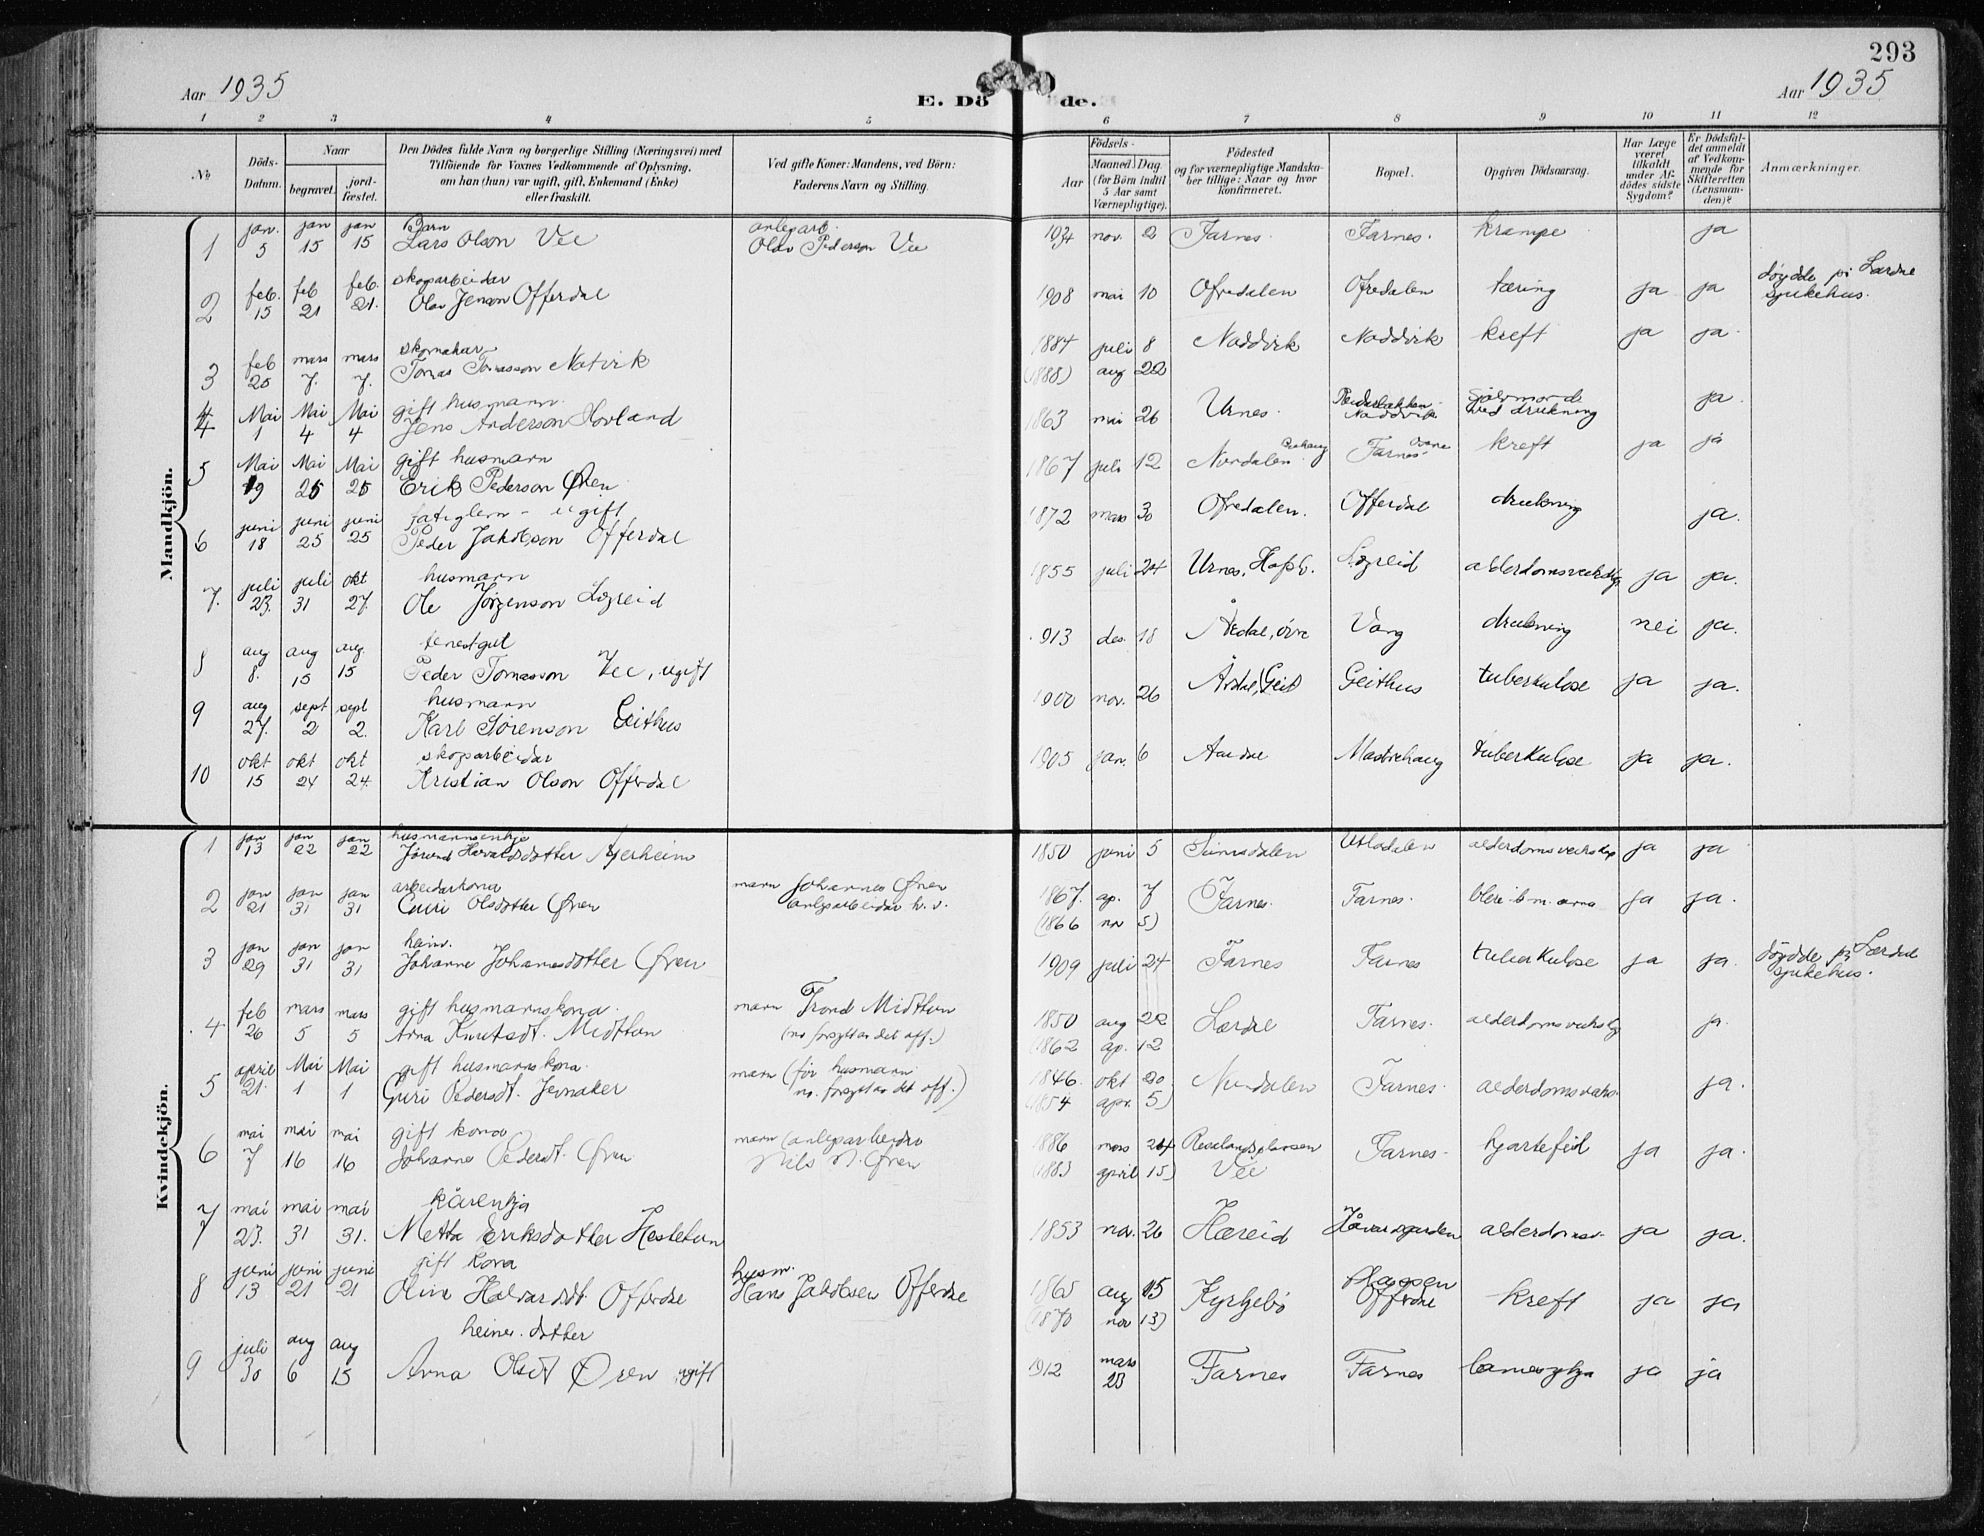 293
Aar 1935
E. Döde.
Aar 1935
1 2 3 4 5 6 7 8 9 10 11 12
No
Döds-Datum.
Naar
begravet.
jord-fæstet.
Den Dödes fulde Navn og borgerlige Stilling (Næringsvei) med
Tilföiende for Voxnes Vedkommende af Oplysning,
om han (hun) var ugift, gift, Enkemand (Enke)
eller fraskilt.
Ved gifte Koner: Mandens, ved Börn:
Faderens Navn og Stilling.
Födsels-
Aar
Maaned Dag
(for Börn indtil
5 Aar samt
Værnepligtige).
Födested
og for værnepligtige Mandska-
ber tillige: Naar og hvor
konfirmeret.
Bopæl.
Opgiven Dödsaarsag.
Har Læge
været
tilkaldt
under Af-
dödes sidste
Sygdom?
Er Dödsfal-
det anmeldt
af Vedkom-
mende for
Skifteretten
(Lensman-
den)?
Anmærkninger.
Mandkjön.
1 jan. 5 jan 15 jan 15 Barn Lars Olson Vee anlegsarb. Olav Pederson Vee 1934 nov. 2 Farnes Farnes. krampe ja
2 feb. 15 feb 21 feb. 21. skogarbeidar Olav Jenson Offerdal 1908 mai 10 Ofredalen Ofredalen tæring ja ja döydde på Lærdal sjukehus.
3 feb 25 mars 7. mars 7. skomakar Tomas Tomasson Natvik 1884 juli 8 (1888) aug 22 Naddvik Naddvik kreft ja ja.
4 Mai 1 Mai 4 Mai 4 gift husmann. Jens Anderson Hovland 1863 mai 26 Urnes. Naddvik sjølvmord ved drukning ja.
5 Mai 19 Mai 25 Mai 25 gift husmann Erik Pederson Øren 1867 juli 12 Nundalen Farnes kreft ja ja
6 juni 18 juni 25 juni 25 ugift Peder Jakobson Offerdal 1872 mars 30 Ofredalen. Offerdal drukning ja.
7. juli 23. juli 31 okt 27. husmann Ole Jørgenson Lægreid 1855 juli 24 Urnes, Hafslo. Lægreid alderdomsveikskap ja ja.
8 aug 8. aug 15 aug. 15 tenestgut Peder Tomasson Vee, ugift 1913 des. 18 Årdal, övre Vang drukning nei ja.
9 aug 27. sept 2 sept 2. husmann Karl Sørenson Geithus 1900 nov. 26 Årdal, Geit Geithus tuberkulose ja ja.
10 okt 15 okt 24 okt 24. skogsarbeidar Kristian Olson Offerdal 1905 jan. 6 Aardal tuberkulose ja ja.
Kvindekjön.
1 jan 13 jan 22 jan 22 husmannsenkje Jørend Havardsdotter Hjerheim 1850 juni 5 Utladalen alderdomsveikskap ja ja
2 jan 21 jan 31 jan 31 arbeidarkona Guri Olsdotter Øren mann Johannes Øren anlegsarbeidar 1867. ap. 7 (1866 nov 5) Farnes. Farnes. ja ja.
3 jan 29 jan 31 jan 31 heim. Johanne Johannesdotter Øren 1909 juli 24 Farnes Farnes tuberkulose ja ja. döydde på Lærdal sjukehus.
4 feb 26 mars 5 mars 5 gift husmannskona. Anna Knutsdt. Midttun mann Trond Midttun (no forsytt av det off.) 1850 aug 22 (1862 ap. 12 Lærdal Farnes. alderdomsveikskap ja.
5 april 21. Mai 1 Mai 1 gift husmannskona. Guri Pedersdt. Jevnaker mann (för husmann no. forsytt av det off.) 1846. okt 20 (1854 apr. 5) Nundalen Farnes. alderdomsveiks. ja.
6 mai 7 mai 16 mai 16 gift kona Johanne Pedersdt. Øren mann (anlegsarbeidar Nils N. Øren 1886 mars 24 (1883 april 15) Vee Farnes. hjartefeil ja ja.
7 mai 23. mai 31 mai 31. kårenkja Metta Eriksdotter Hestetun 1853 nov. 26 Hæreid Håvardgarden alderdomsv. ja ja.
8 juni 13 juni 21 juni 21 gift kona Oline Halvardsdt. Offerdal husm. Hans Jakobsen Offerdal 1865 aug 15 (1870 nov 13) Kyrkjebö Offerdal kreft ja ja
9 juli 30 aug 6 aug 15 heimev. dotter Anna Olsdt Øren ugift 1912 mars 23 Farnes Farnes ja ja